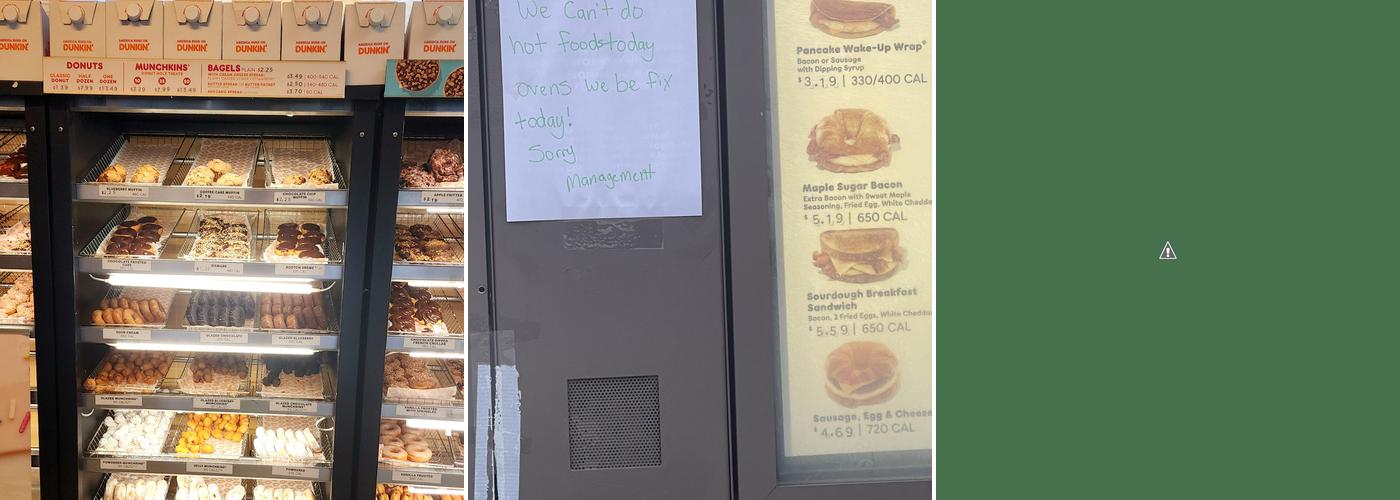 AMERICA RUNS ON
DUNKIN'
AMERICA RUNS ON
DUNKIN'
AMERICA RUNS ON
DUNKIN'
AMERICA RUNS ON
DUNKIN'
AMERICA RUNS ON
DUNKIN'
DUNKIN'
DONUTS
CLASSIC DONUT
HALF DOZEN
ONE DOZEN
MUNCHKINS®
DONUT HOLE TREATS
10
25
50
BAGELS PLAIN $2.25
WITH CREAM CHEESE SPREAD
$3.49 | 400-540 CAL
AVOCADO SPREAD
BLUEBERRY MUFFIN
COFFEE CAKE MUFFIN
$2.19
CHOCOLATE CHIP MUFFIN
APPLE FRITTER
$2.19
CHOCOLATE FROSTED
BOSTON KREME
SOUR CREAM
GLAZED CHOCOLATE
GLAZED BLUEBERRY
CHOCOLATE DIPPED
FRENCH CRULLER
GLAZED MUNCHKINS®
GLAZED BLUEBERRY
MUNCHKINS®
GLAZED CHOCOLATE
MUNCHKINS®
VANILLA FROSTED
WITH SPRINKLES
POWDERED MUNCHKINS®
JELLY MUNCHKINS®
POWDERED
VANILLA FROSTED
We Can't do
hot foods today
ovens we be fix
today!
Sorry
Management
Pancake Wake-Up Wrap®
Bacon or Sausage
with Dipping Syrup
$3.19 | 330/400 CAL
Maple Sugar Bacon
Extra Bacon with Sweet Maple
Seasoning, Fried Egg, White Chedda
$5.19 | 650 CAL
Sourdough Breakfast
Sandwich
Bacon, 2 Fried Eggs, White Chedda
$5.59 | 650 CAL
Sausage, Egg & Cheese
$4.69 | 720 CAL